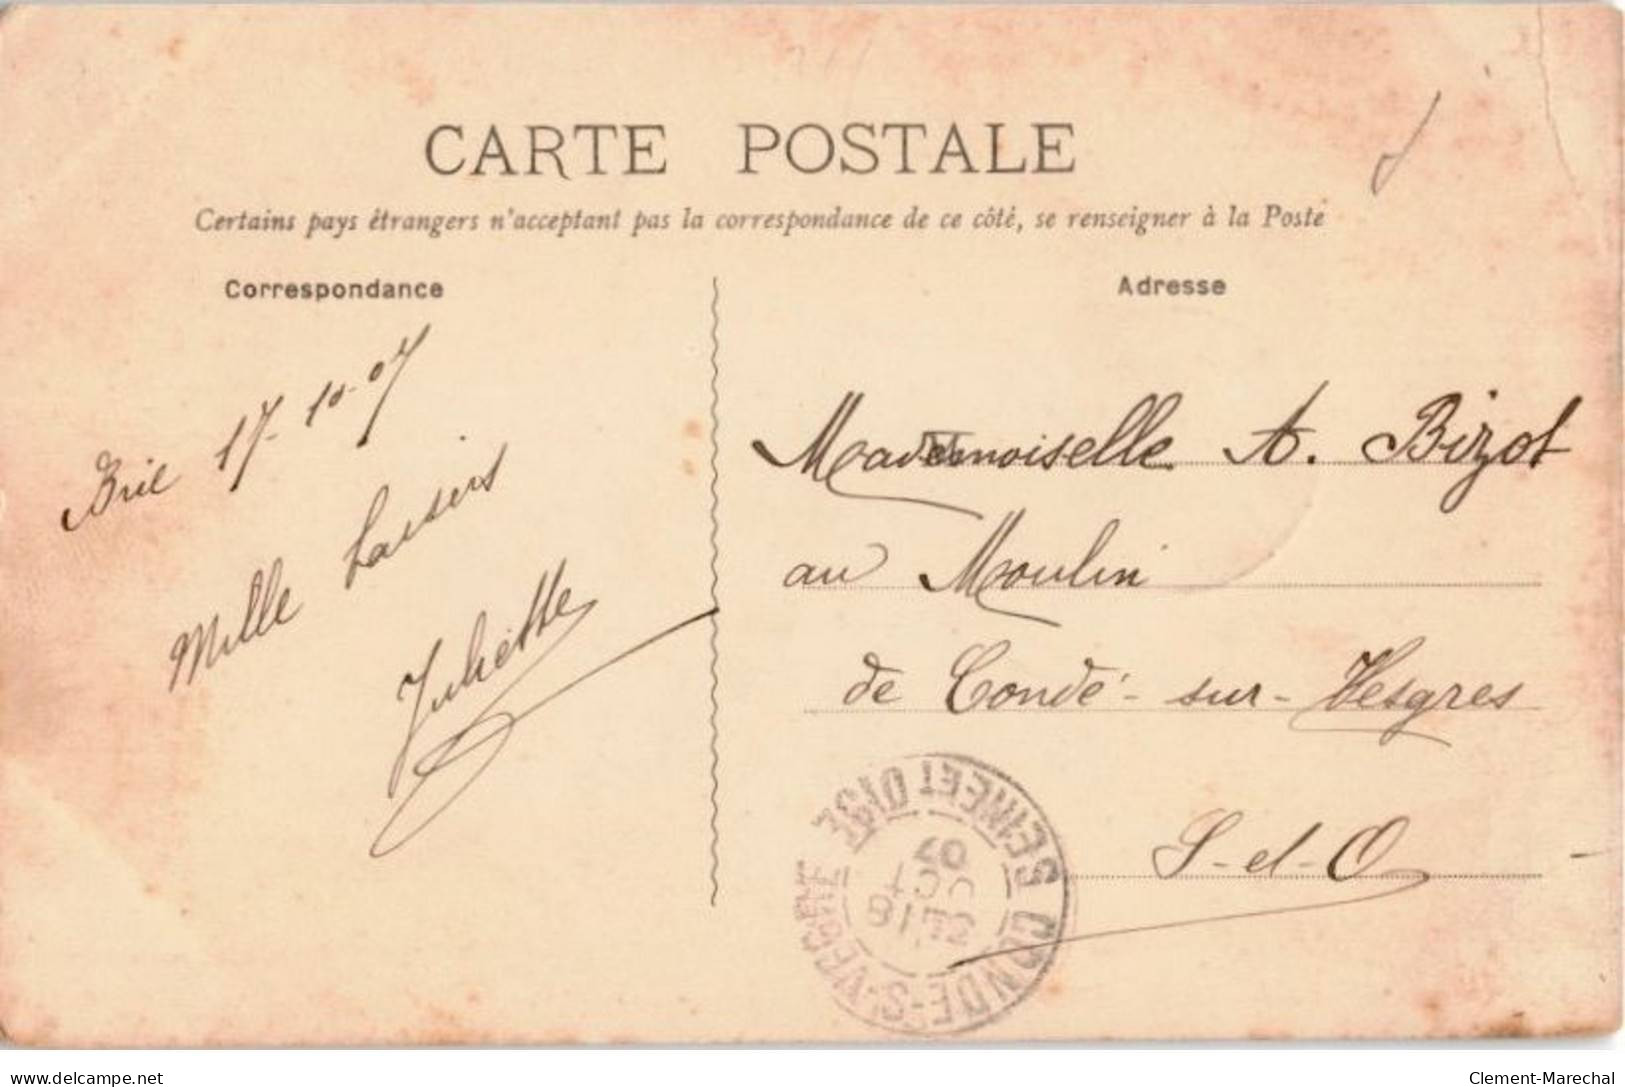 CARTE POSTALE
Certains pays étrangers n'acceptant pas la correspondance de ce côté, se renseigner à la Poste
Correspondance
Brie 17-10-07
Mille baisers
Juliette
Adresse
Mademoiselle A. Bizot
au Moulin
de Condé-sur-Vesgres
S-et-O
CONDE-S-VESGRE SEINE ET OISE
18
OCT
07
delcampe.net
Clement-Marechal